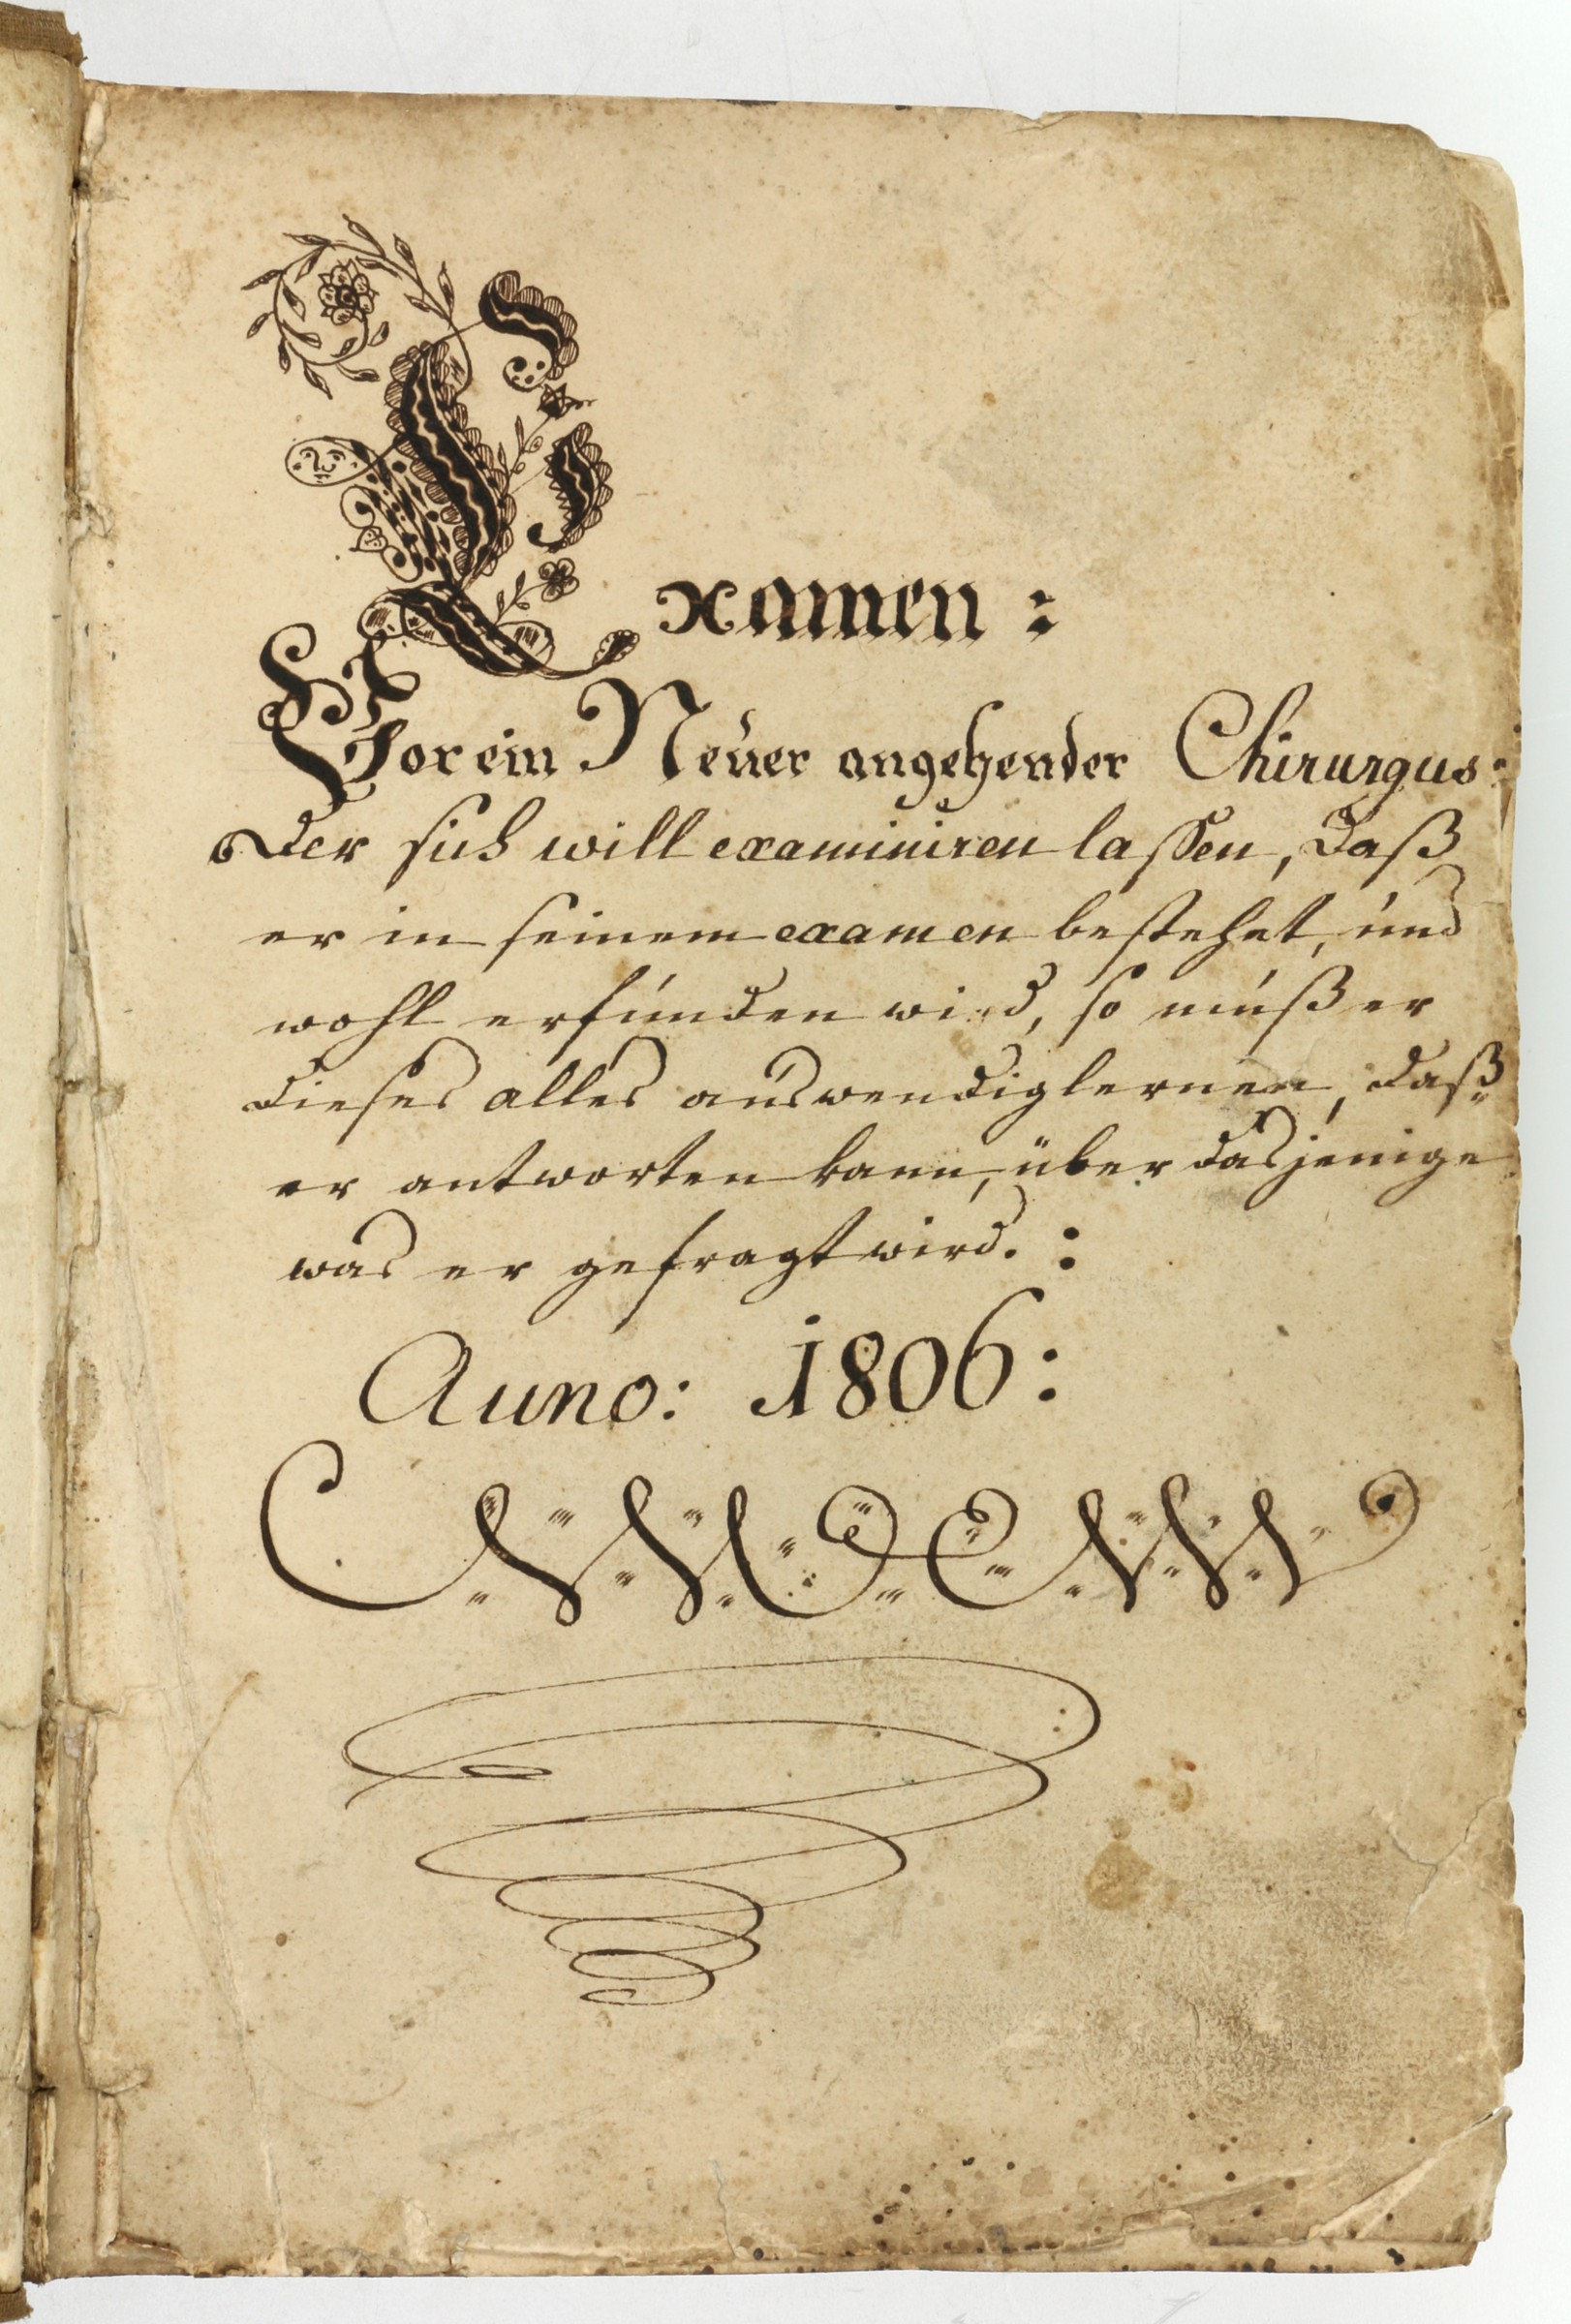 Examen:
Vor ein Neuer angehender Chirurgus:
Der sich will examiniren lassen, Daß
er in seinem examen bestehet, und
wohl erfunden wird, so muß er
dieses alles auswendig lernen, daß
er antworten kann, über dasjenige
was er gefragt wird. :
Anno: 1806: